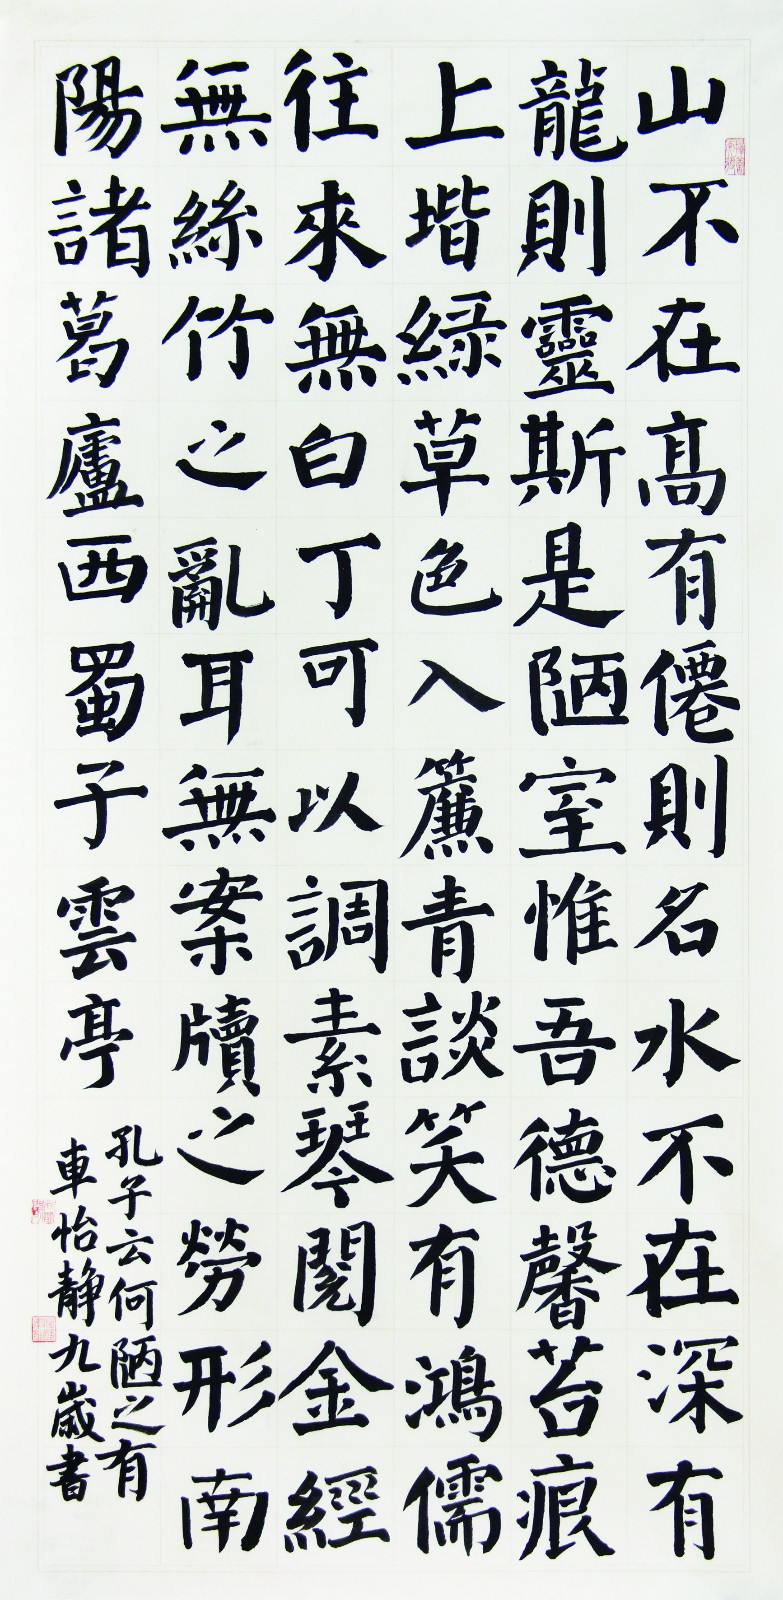 山不在高有僊則名水不在深有
龍則靈斯是陋室惟吾德馨苔痕
上堦綠草色入簾青談笑有鴻儒
往來無白丁可以調素琴閱金經
無絲竹之亂耳無案牘之勞形南
陽諸葛廬西蜀子雲亭
孔子云何陋之有
車怡靜九歲書